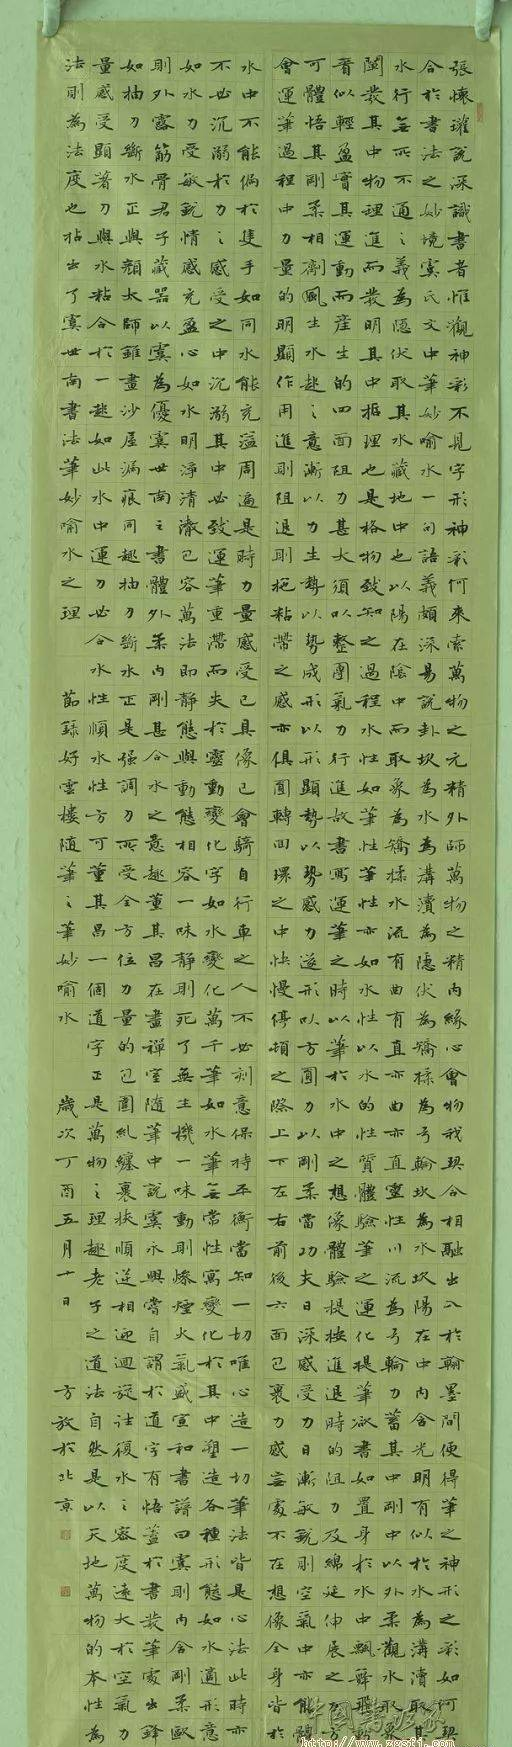 張懷瓘說深識書者惟觀神彩不見字形神彩何來索萬物之元精外師萬物之精內緣心會物我契合相融出入於翰墨間便得筆之神形之彩如何契
合於書法之妙境虞氏文中筆妙喻水一句語義頗深易說卦坎為水為溝瀆為隱伏為矯揉為弓輪坎為水坎陽在中內含光明有似於水為溝瀆取其
水行無所不通之義為隱伏取其水藏地中也以陽在陰中而取象為矯揉水流有曲有直亦曲亦直靈性川流為弓輪力蓄其中剛中以外柔觀水取象
闡發其中物理進而發明其中據理也是格物致知之過程水性如筆性筆性亦如水性以水的性質體驗筆之運化提筆欲書如置身於水中飄舞飛動
看似輕盈實其運動而產生的四面阻力甚大須以整團氣力行進故書寫運筆之時以筆於水中之想像體驗提按進退時的阻力及綿延伸展之力方
可體悟其剛柔相劑風生水趣之意漸以力生勢以勢成形以形顯勢以勢感力遂形以方圓力以剛柔當功夫日深感受力日漸敏銳則空氣中亦能
會運筆過程中力量的明顯作用進則阻退則拖粘帶之感亦俱圓轉回環之中快慢停頓之際上下左右前後六面已裹力感無處不在想像全身皆於
水中不能偏於隻手如同水能充溢周遍是時力量感受已具像已會騎自行車之人不必刻意保持平衡當知一切唯心造一切筆法皆是心法此時亦
不必沉溺於力之感受之中沉溺其中必致運筆重滯而失於靈動變化字如水變化萬千筆如水筆無常性寓變化於其中塑造各種形態如水適形意
如水力受敏銳情感充盈心如水明淨清澈已容萬法即靜態與動態相容一味靜則死了無生機一味動則燥煙火氣盛宣和書譜曰虞則內含剛柔歐
則外露筋骨君子藏器以虞為優虞世南之書體外柔內剛甚合水之意趣董其昌在畫禪室隨筆中說虞永興嘗自謂於道字有悟蓋於書發筆處出鋒
如抽刀斷水正與顏太師錐畫沙屋漏痕同趣抽刀斷水正是強調力所受全方位力量的包圍糾纏裹挾順逆相迎迴旋往復水之容度遠大於空氣力
量感受顯著刀與水粘合於一趣如此水中運刀必合水性順水性方可董其昌一個道字正是萬物之理趣老子之道法自然是以天地萬物的本性為
法則為法度也拈出了虞世南書法筆妙喻水之理 節錄好雲樓隨筆之筆妙喻水 歲次丁酉五月十日 方放於北京
中国书法家
http://www.zgsfj.com